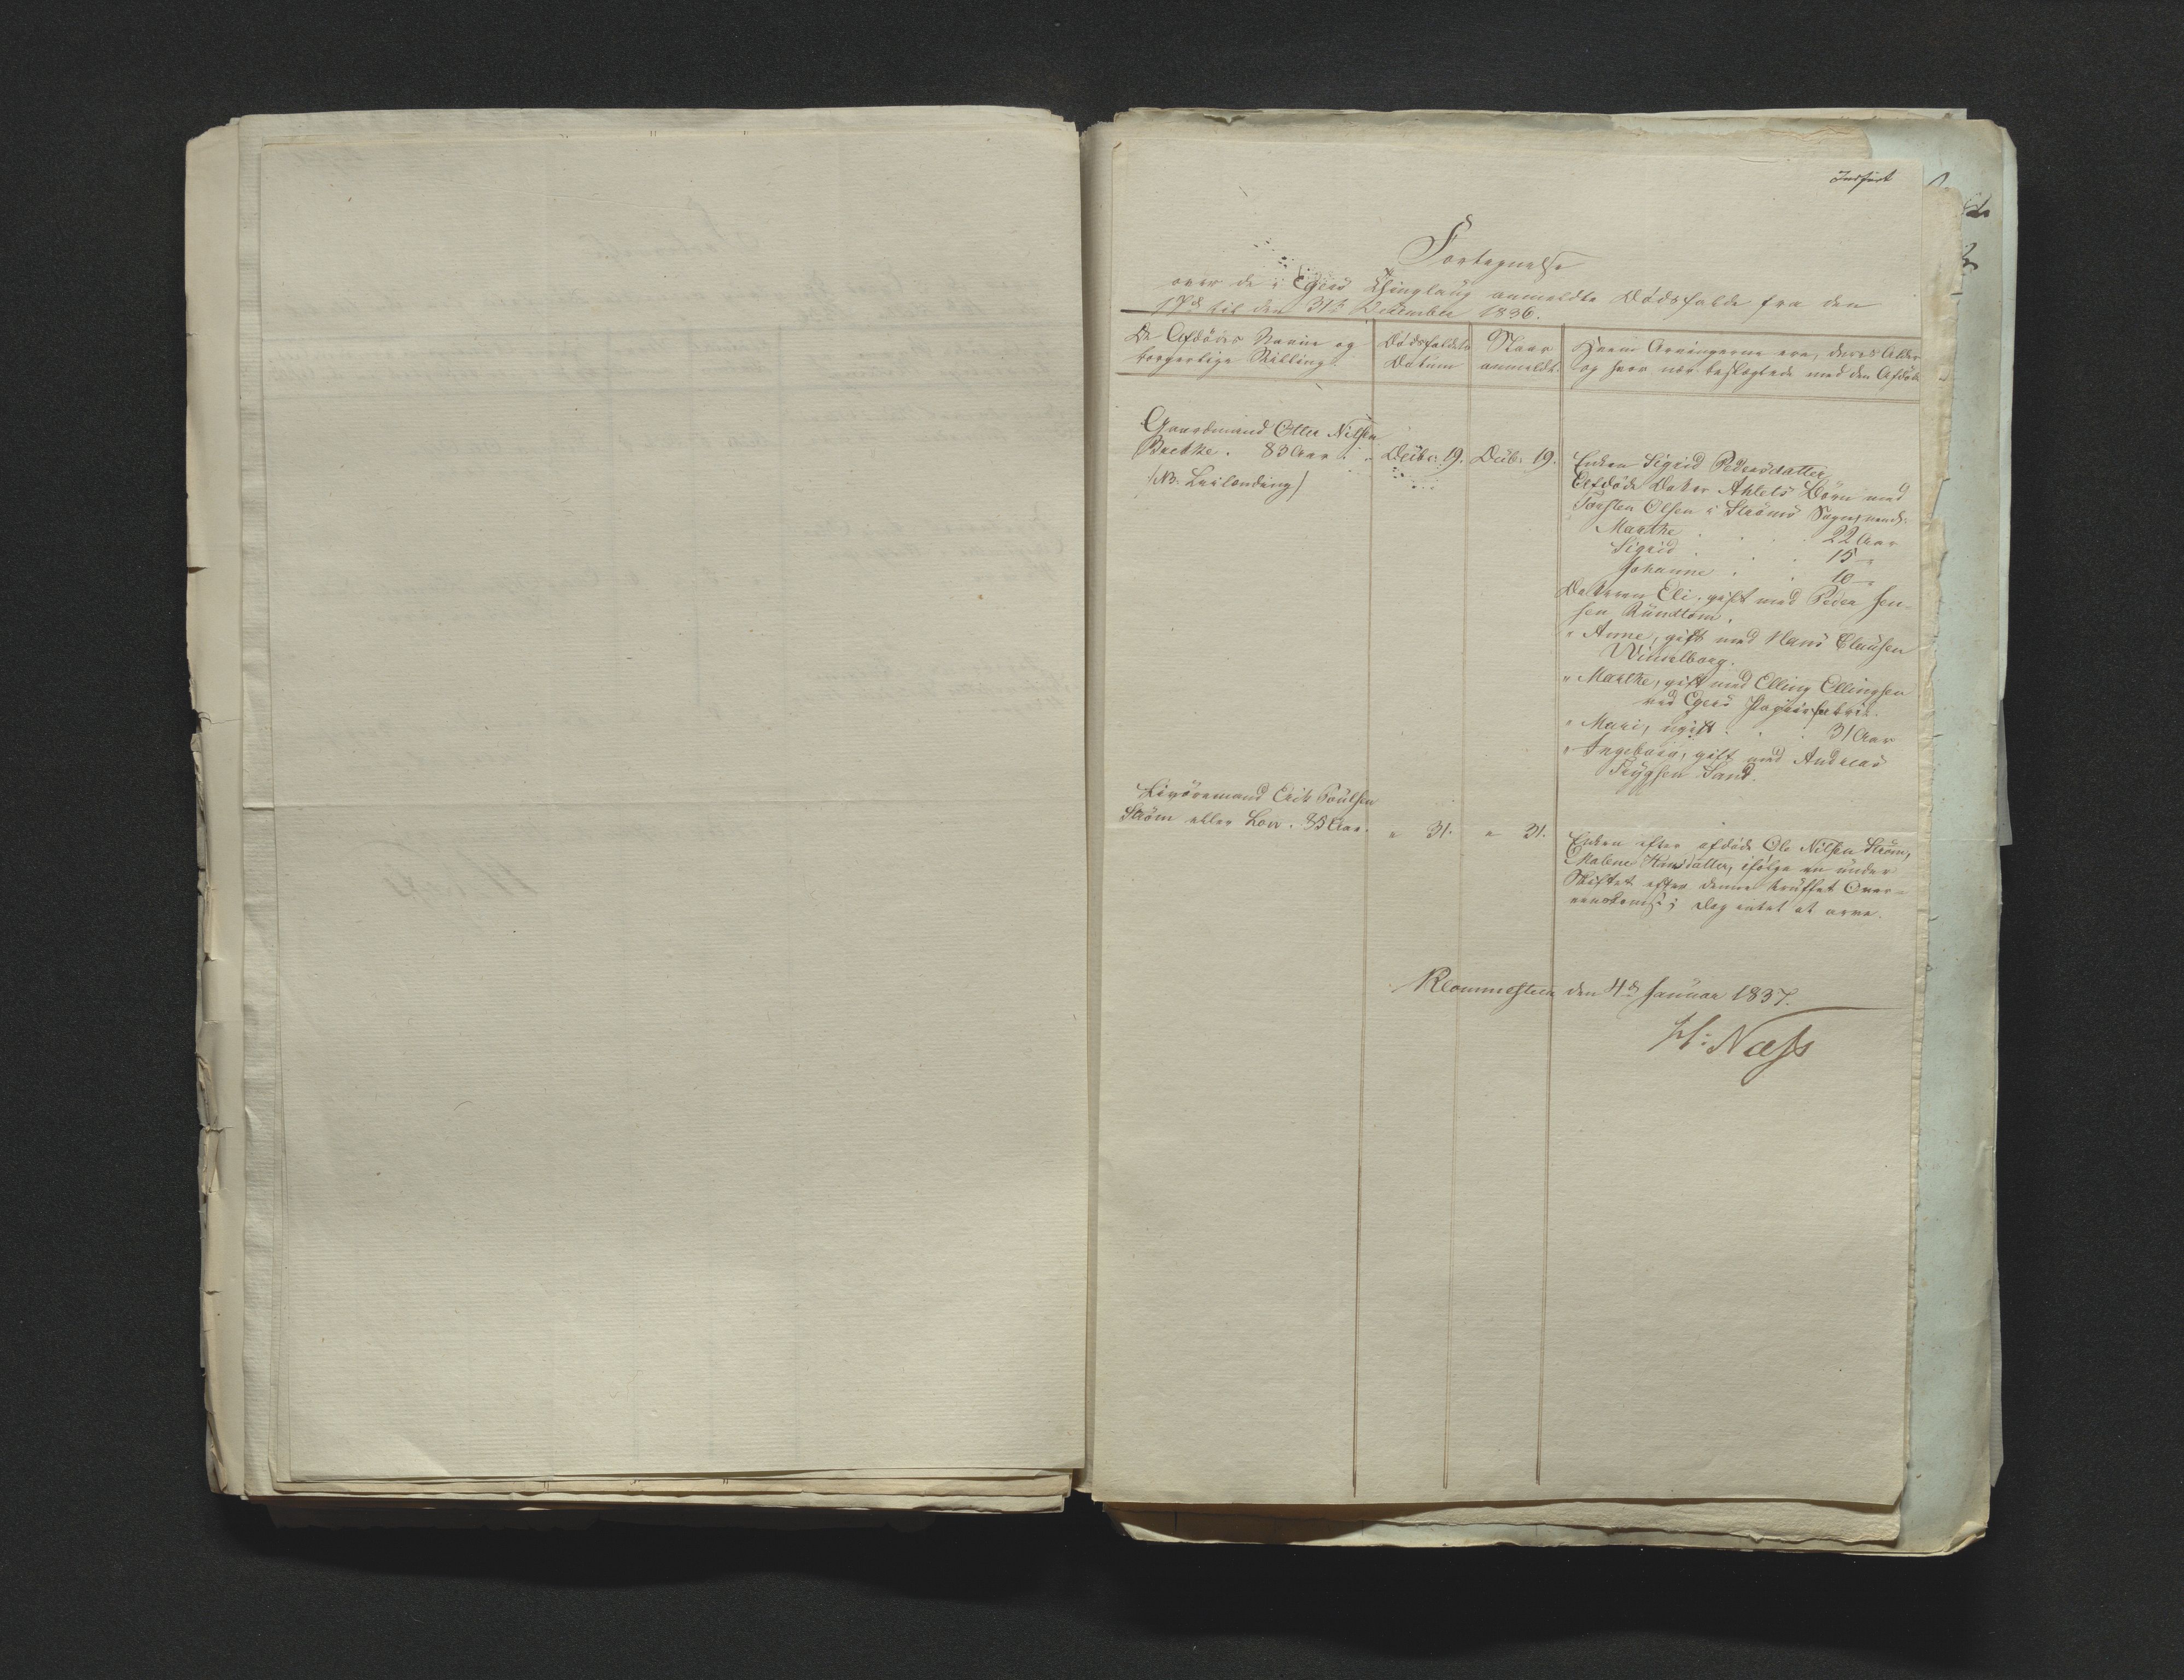 Indført
Fortegnelse
over de i Egers Thinglaug anmeldte Dødsfalde fra den
17de til den 31te December 1836.
De Afdødes Navne og
borgerlige Stilling.
Dødsfaldets
Datum
Naar
anmeldt.
Hvem Arvingerne ere, deres Alder
og hvor nær beslægtede med den Afdøde
Gaardmand Otter Nilsen
Bache. 83 Aar.
Decbr: 19.
Decbr: 19.
Enken Sigrid Pedersdatter
Afdøde Datter Ahlets Børn med
Torsten Olsen i Strøms Sogn, navnl:
Marthe 22 Aar
Sigrid 15 "
Johanne 10 "
Datteren Eli, gift med Peder Jen-
sen Rundtom.
" Anne, gift med Hans Clausen
" Marthe, gift med Elling Ellingsen
ved Egers Papiirfabrik.
" Mari, ugift 31 Aar
" Ingeborg, gift med Andreas
Sand.
Livøremand Erik Poulsen
Strøm eller Loe. 85 Aar.
" 31.
" 31.
Enken efter afdøde Ole Nilsen Strøm,
Malene Hansdatter, ifølge en under
Skiftet efter denne truffet Over-
eenskomst; dog intet at arve.
den 4de Januar 1837.
H: Næss